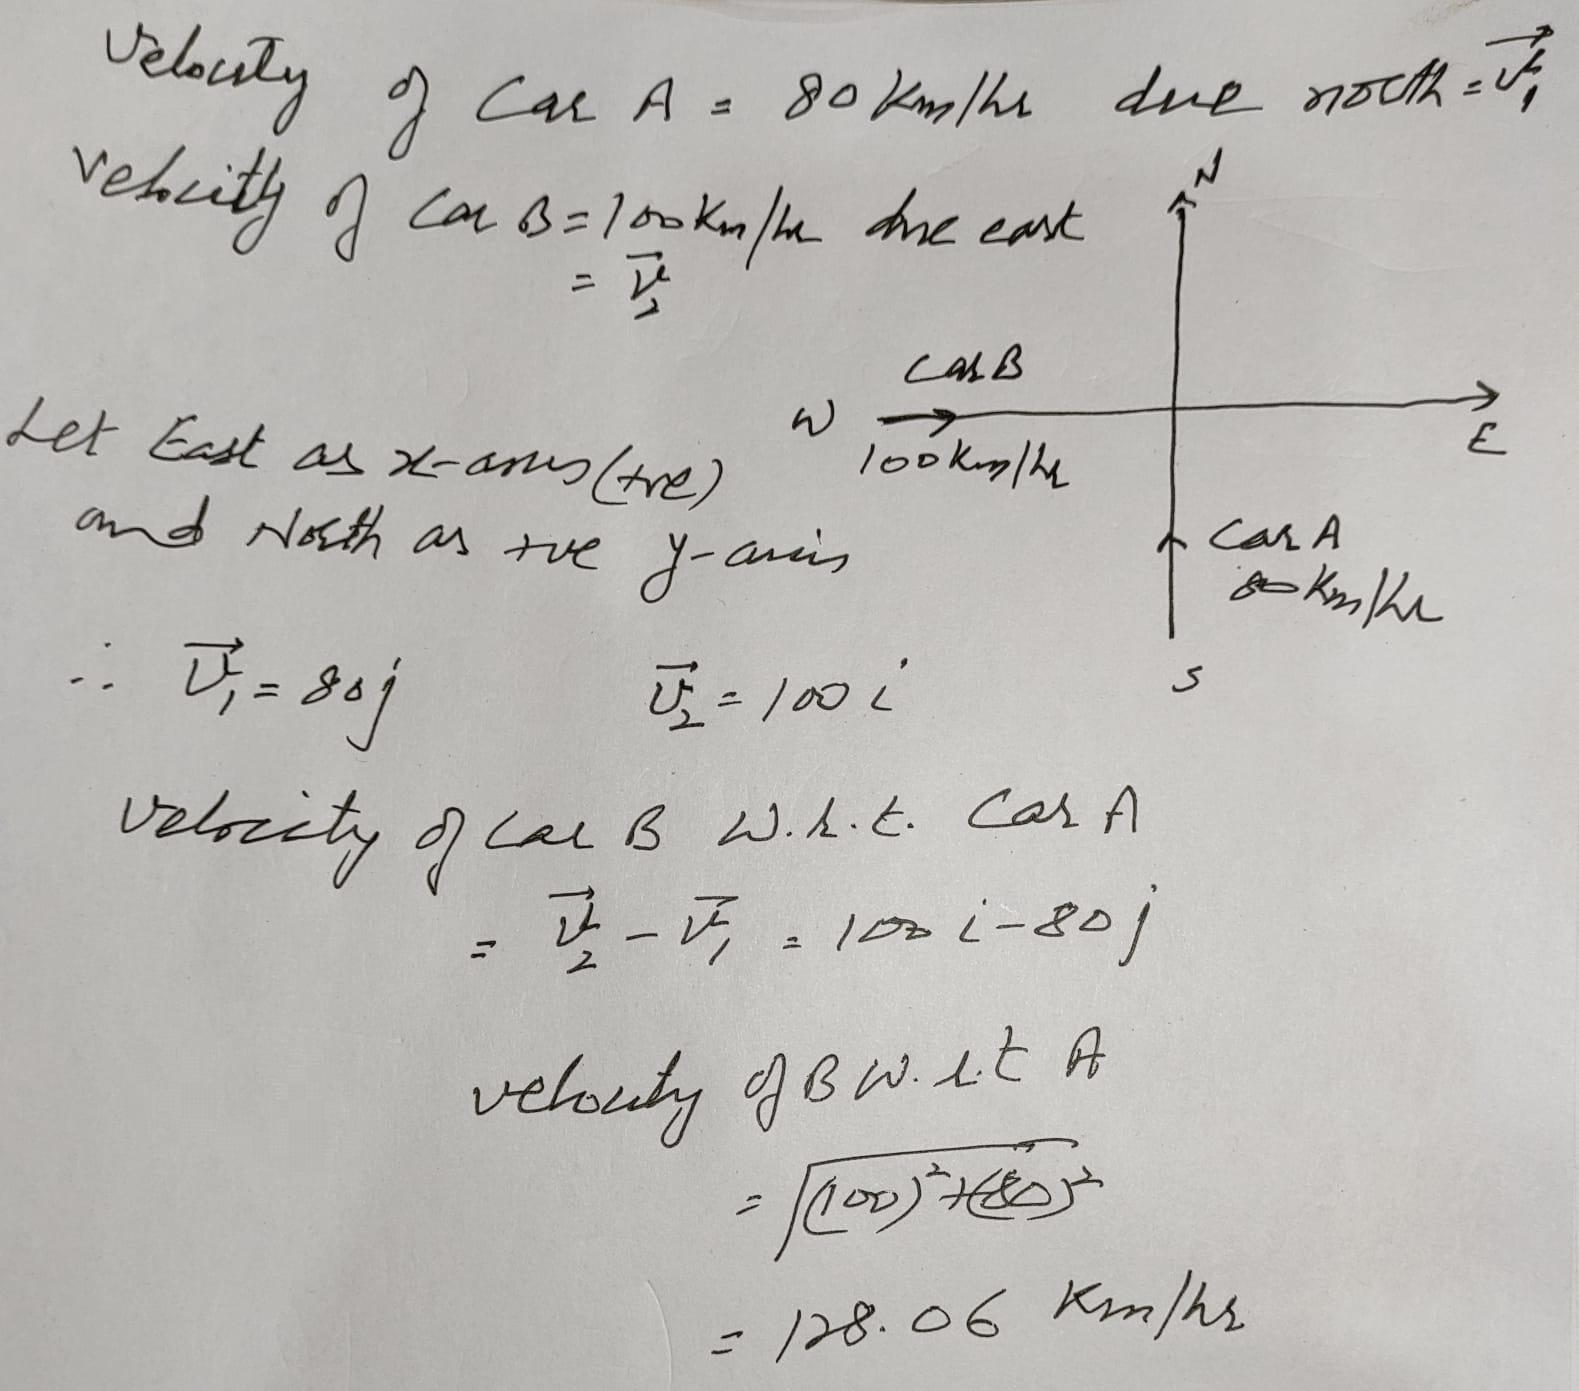 Velocity of Car A = 80 Km/hr due north = v⃗₁
Velocity of Car B = 100 Km/hr due east
= v⃗₂
N
Car B
W
E
100 Km/hr
Let East as x-axis (+ve)
and North as +ve y-axis
Car A
80 Km/hr
S
∴ v⃗₁ = 80j v⃗₂ = 100 i
Velocity of Car B w.r.t. Car A
= v⃗₂ - v⃗₁ = 100 i - 80 j
velocity of B w.r.t A
= √((100)² + (80)²)
= 128.06 Km/hr